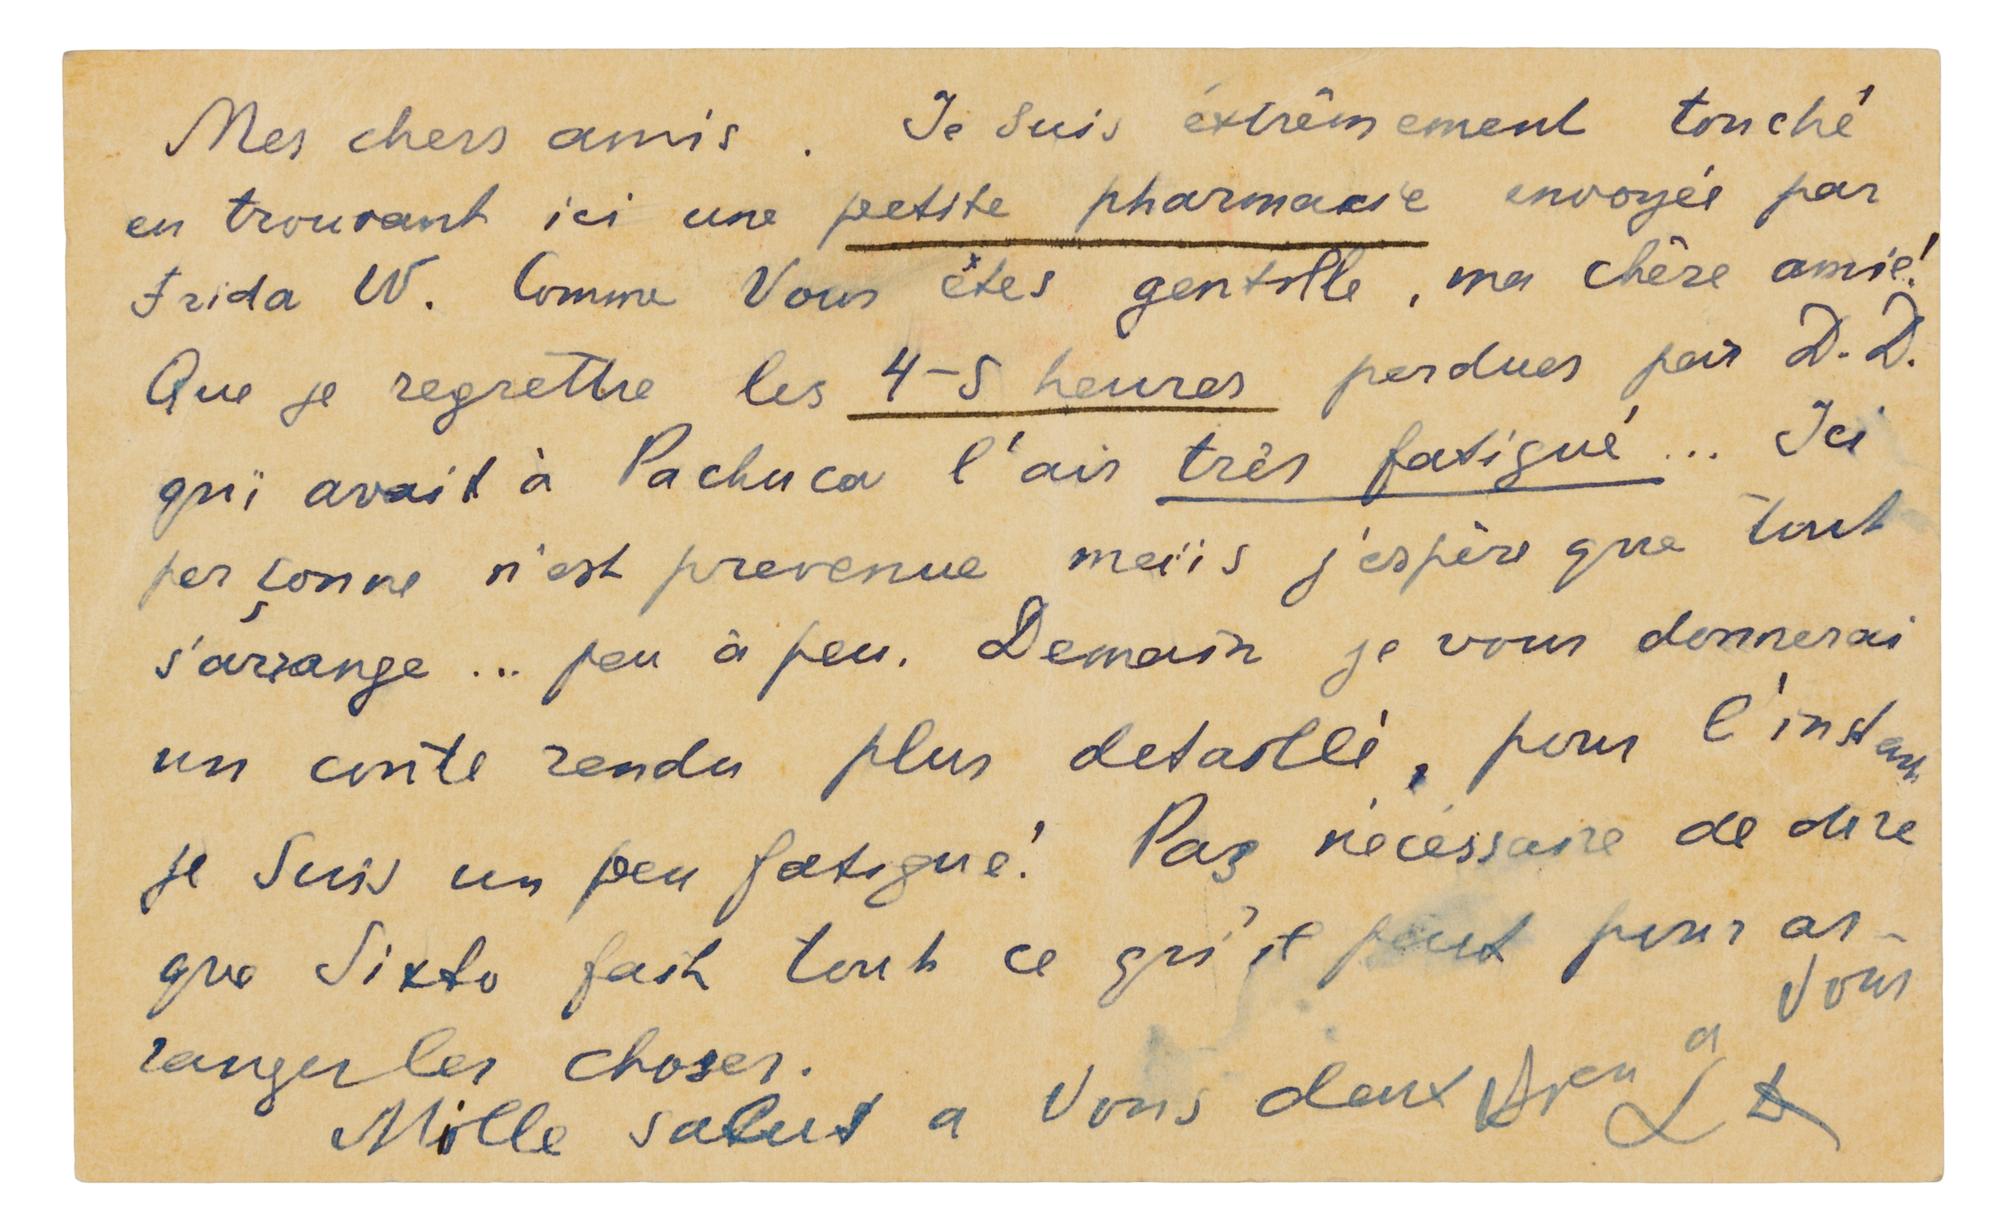 Mes chers amis. Je suis éxtrêmement touché
en trouvant ici une petite pharmacie envoyée par
Frida W. Comme Vous êtes gentille, ma chère amie!
Que je regretthe les 4-5 heures perdues par D.D.
qui avait à Pachuca l'air très fatigué... Ici
personne n'est prevenue mais j'espère que tout
s'arrange... peu à peu. Demain je vous donnerai
un conte rendu plus detaillé, pour l'instant
je suis un peu fatigué! Pas nécessaire de dire
que Sixto fait tout ce qu'il peut pour ar-
ranger les choses.
Mille salut a Vous deux Bien a Vous